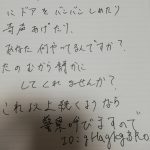 にドアをバンバンしめたり
音声あげたり、
あなた何やってるんですか？
たのむから静かに
してくれませんか？
これ以上続くようなら
警察呼びますので
ID: